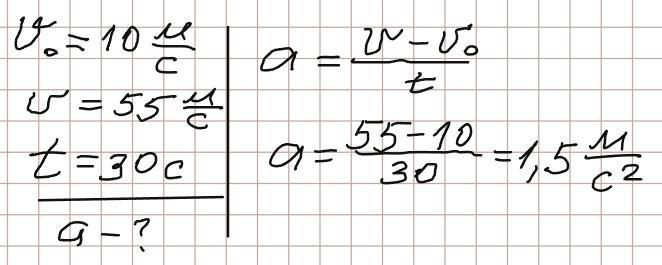 v₀ = 10 м/с
v = 55 м/с
t = 30 с
a – ?
a = (v – v₀)/t
a = (55 – 10)/30 = 1,5 м/с²